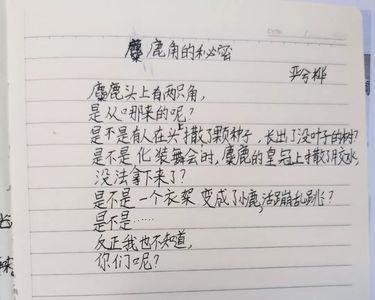 麋鹿角的秘密
麋鹿头上有两只角，
是从哪来的呢？
是不是有人在头上撒了颗种子，长出了没叶子的树？
是不是化装舞会时，麋鹿的皇冠上撒了胶水，
没法拿下来了？
是不是一个衣架变成了小鹿，活蹦乱跳？
是不是……
反正我也不知道，
你们呢？